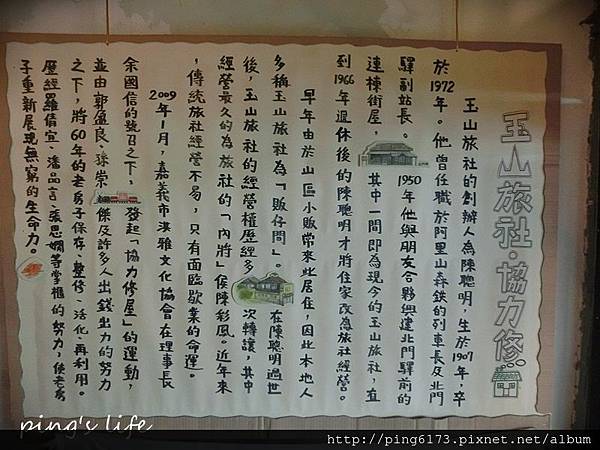 玉山旅社·協力修
玉山旅社的創辦人為陳聰明，生於1907年，卒
於1972年。他曾任職於阿里山森鐵的列車長及北門
驛副站長。 1950年他與朋友合夥興建北門驛前的
連棟街屋， 其中一間即為現今的玉山旅社，直
到1966年退休後的陳聰明才將住家改為旅社經營。
早年由於山區小販常來此居住，因此本地人
多稱玉山旅社為「販仔間」。 在陳聰明過世
後，玉山旅社的經營權歷經多 次轉讓，其中
經營最久的為旅社的「內將」侯陳彩鳳。近年來
，傳統旅社經營不易，只有面臨歇業的命運。
2009年1月，嘉義市洪雅文化協會在理事長
余國信的號召之下， 發起「協力修屋」的運動，
並由郭盈良、孫崇 傑及許多人出錢出力的努力
之下，將60年的老房子保存、整修、活化、再利用。
歷經羅倩宜、潘品言、張思嫺等掌櫃的努力，使老房
子重新展現無窮的生命力。
ping's life
http://ping6173.pixnet.net/album